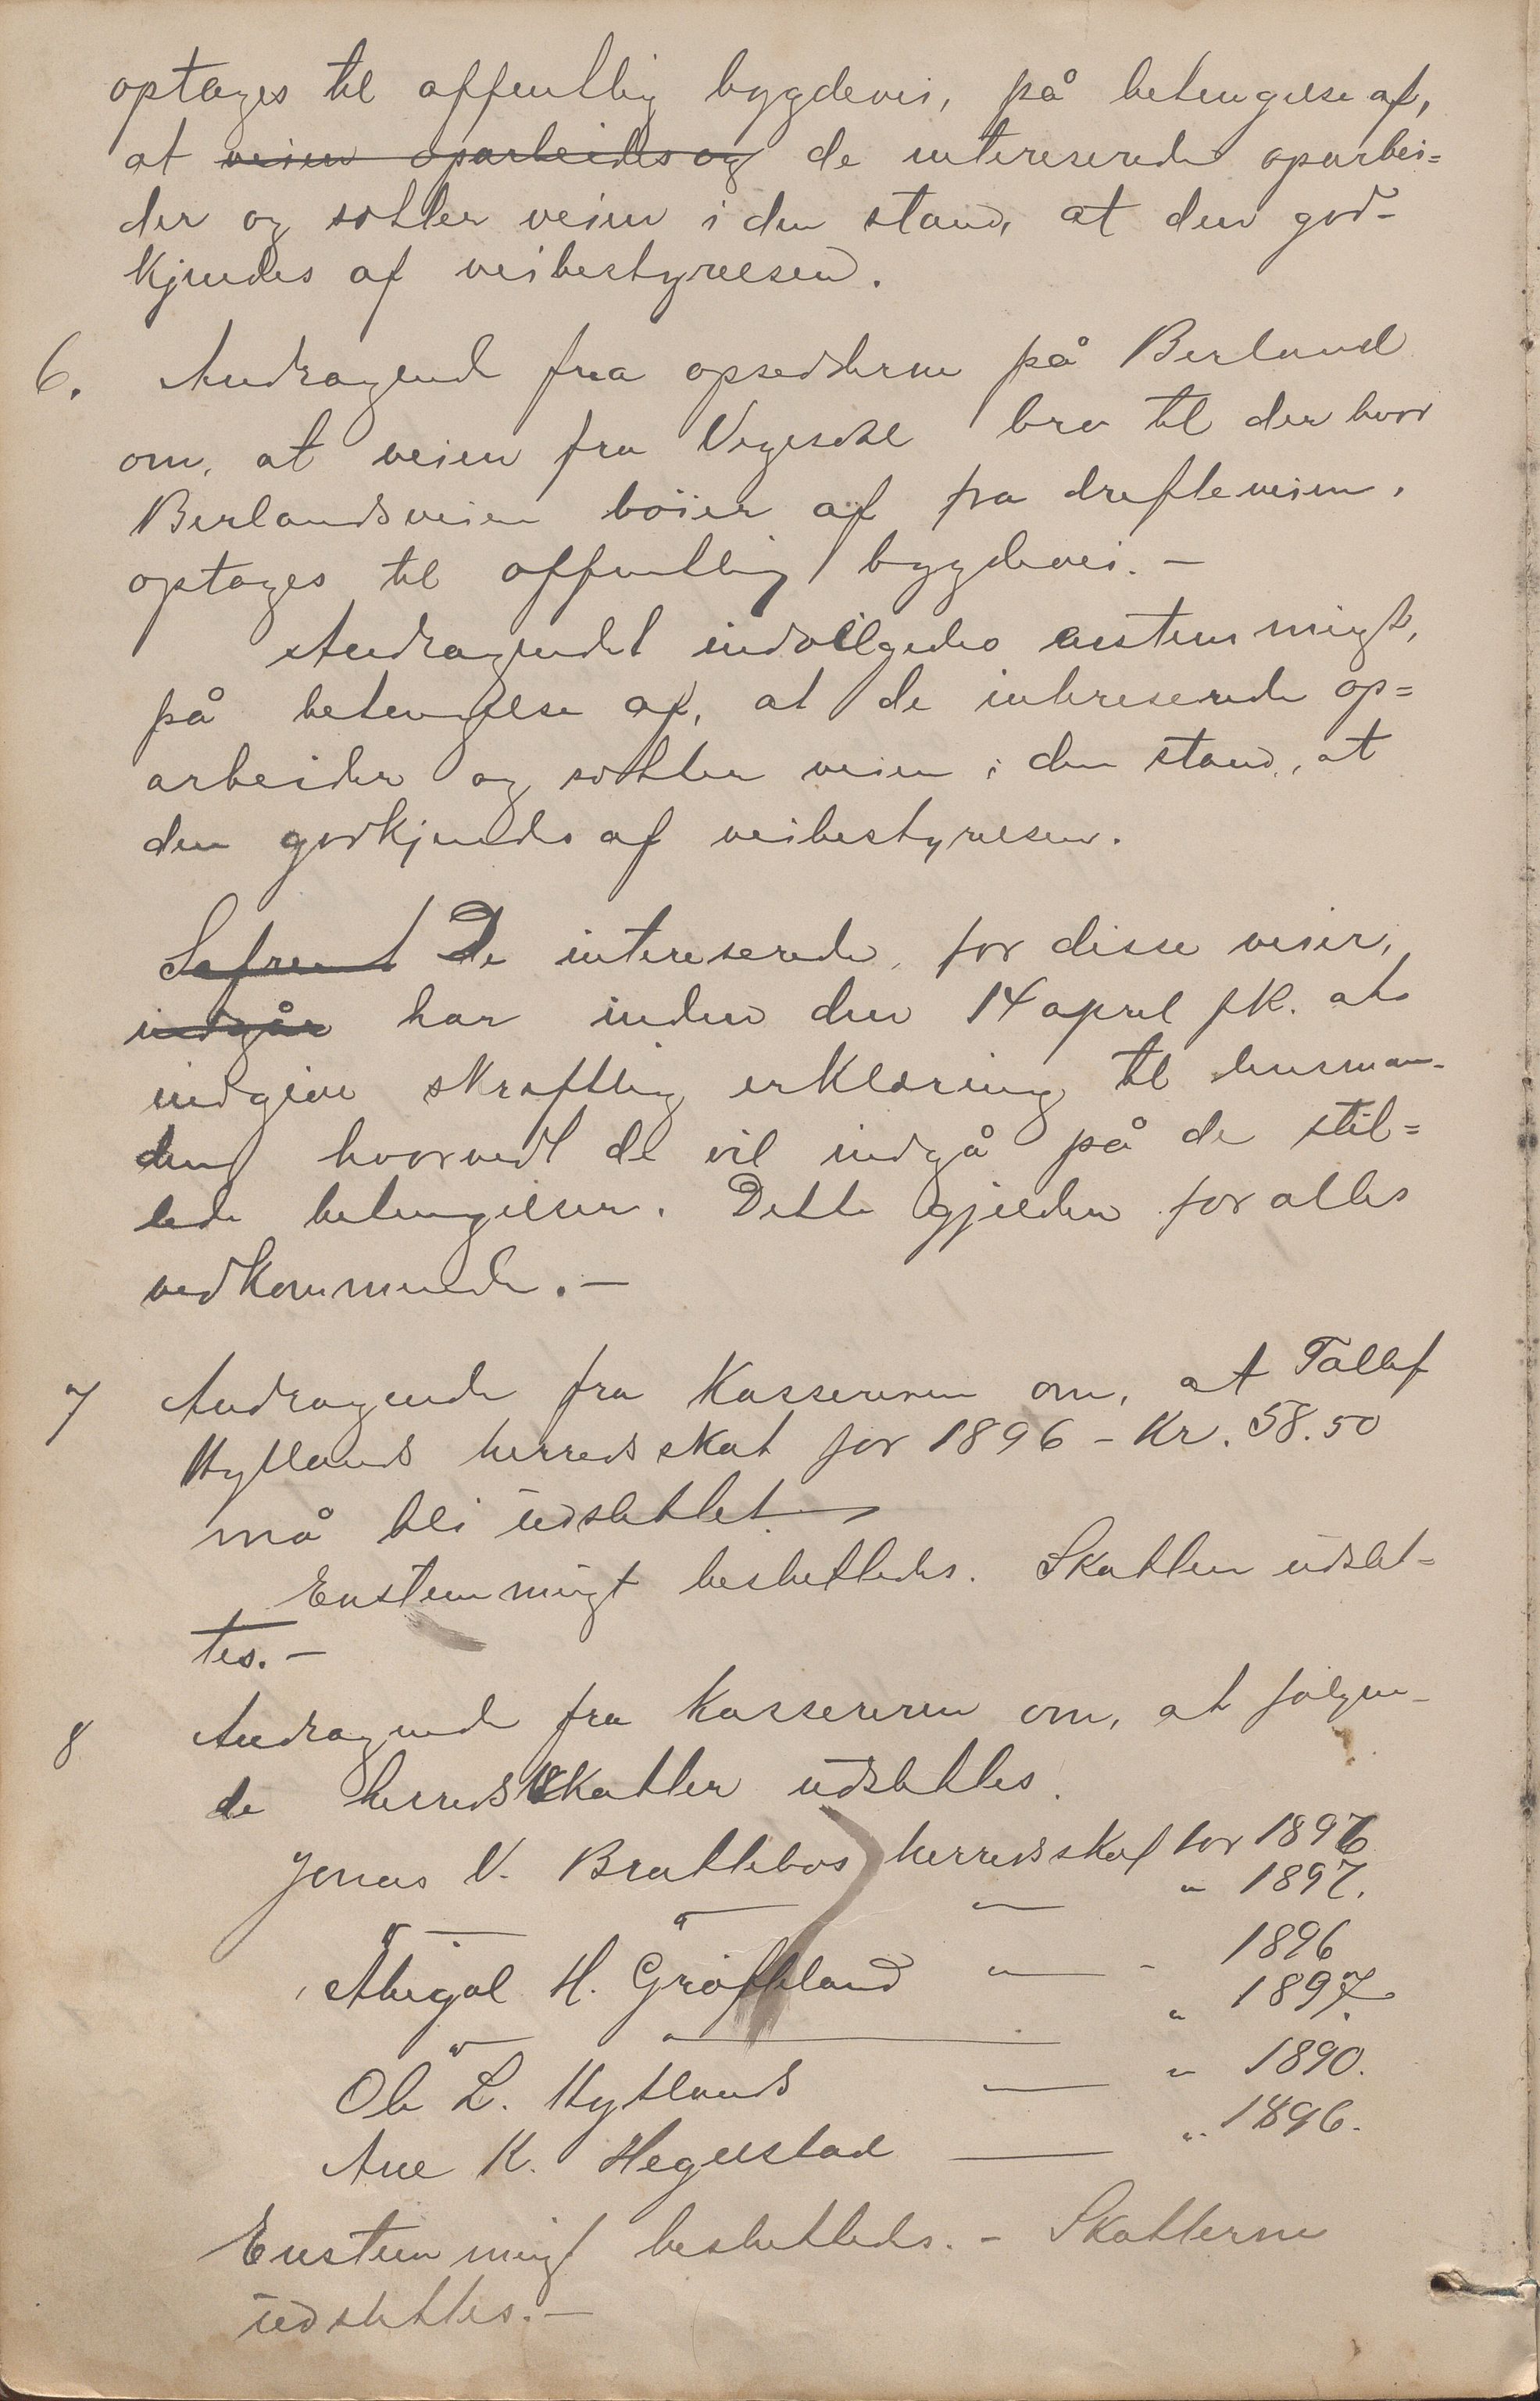 optages til offentlig bygdevei, på betengelse af,
at veien oparbeides og de intereserede oparbei=
der og sætter veien i den stand, at den god-
kjendes af veibestyrelsen.
6. Andragende fra opsedderne på Berland
om, at veien fra Vegesdal bro til der hvor
Berlandsveien böier af fra drifteveien,
optages til offentlig bygdevei. -
Andragendet indvilgedes enstemmigt,
på betengelse af, at de intereserede op=
arbeider og sætter veien i den stand, at
den godkjendes af veibestyrelsen.
Safremt De intereserede, for disse veier,
indgår har inden den 14 april fk. at
indgive skriftlig erklæring til lensman-
den hvorvidt de vil indgå på de stil=
lede betengelser. Dette gjelder for alles
vedkommende. -
7 Andragende fra Kassereren om, at Tallef
Hytlands herredsskat for 1896 - Kr. 58.50
må bli udslettet
Enstemmigt besluttedes. Skatten udslet=
tes. -
8 Andragende fra Kassereren om, at følgen-
de herredsskatter udslettes.
Jonas V. Brattebos herredsskat for 1896
" — " — — " 1897.
Abigal H. Gröffeland " — - 1896
" — " — " 1897.
Ole L. Hytlands — " 1890.
Ane K. Hegelstad — " 1896.
Enstemmigt besluttedes. - Skatterne
udslettes. -